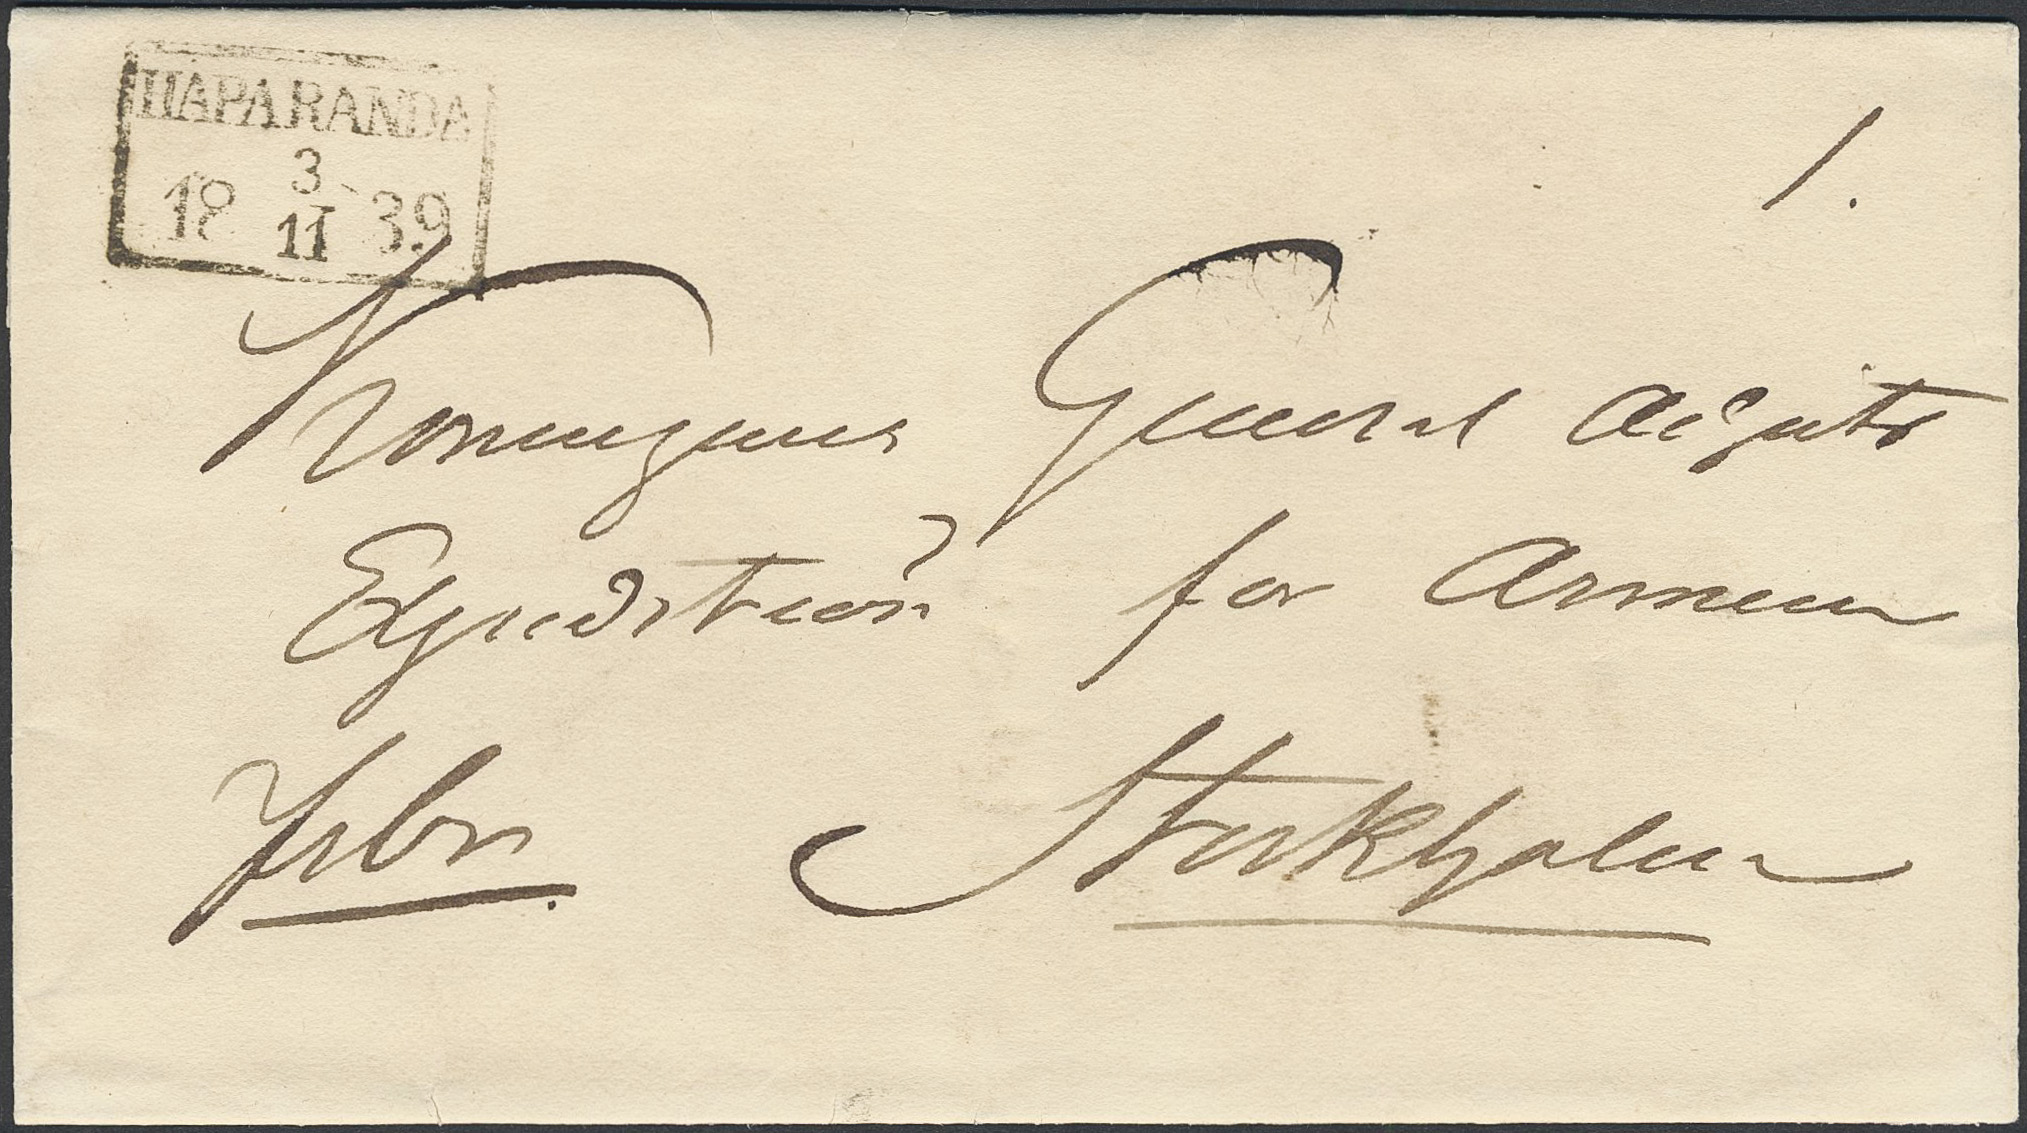 HAPARANDA
3
18 11 39
1.
Konungens General Adjuts
Expedition för Armeen
Frbr. Stockholm